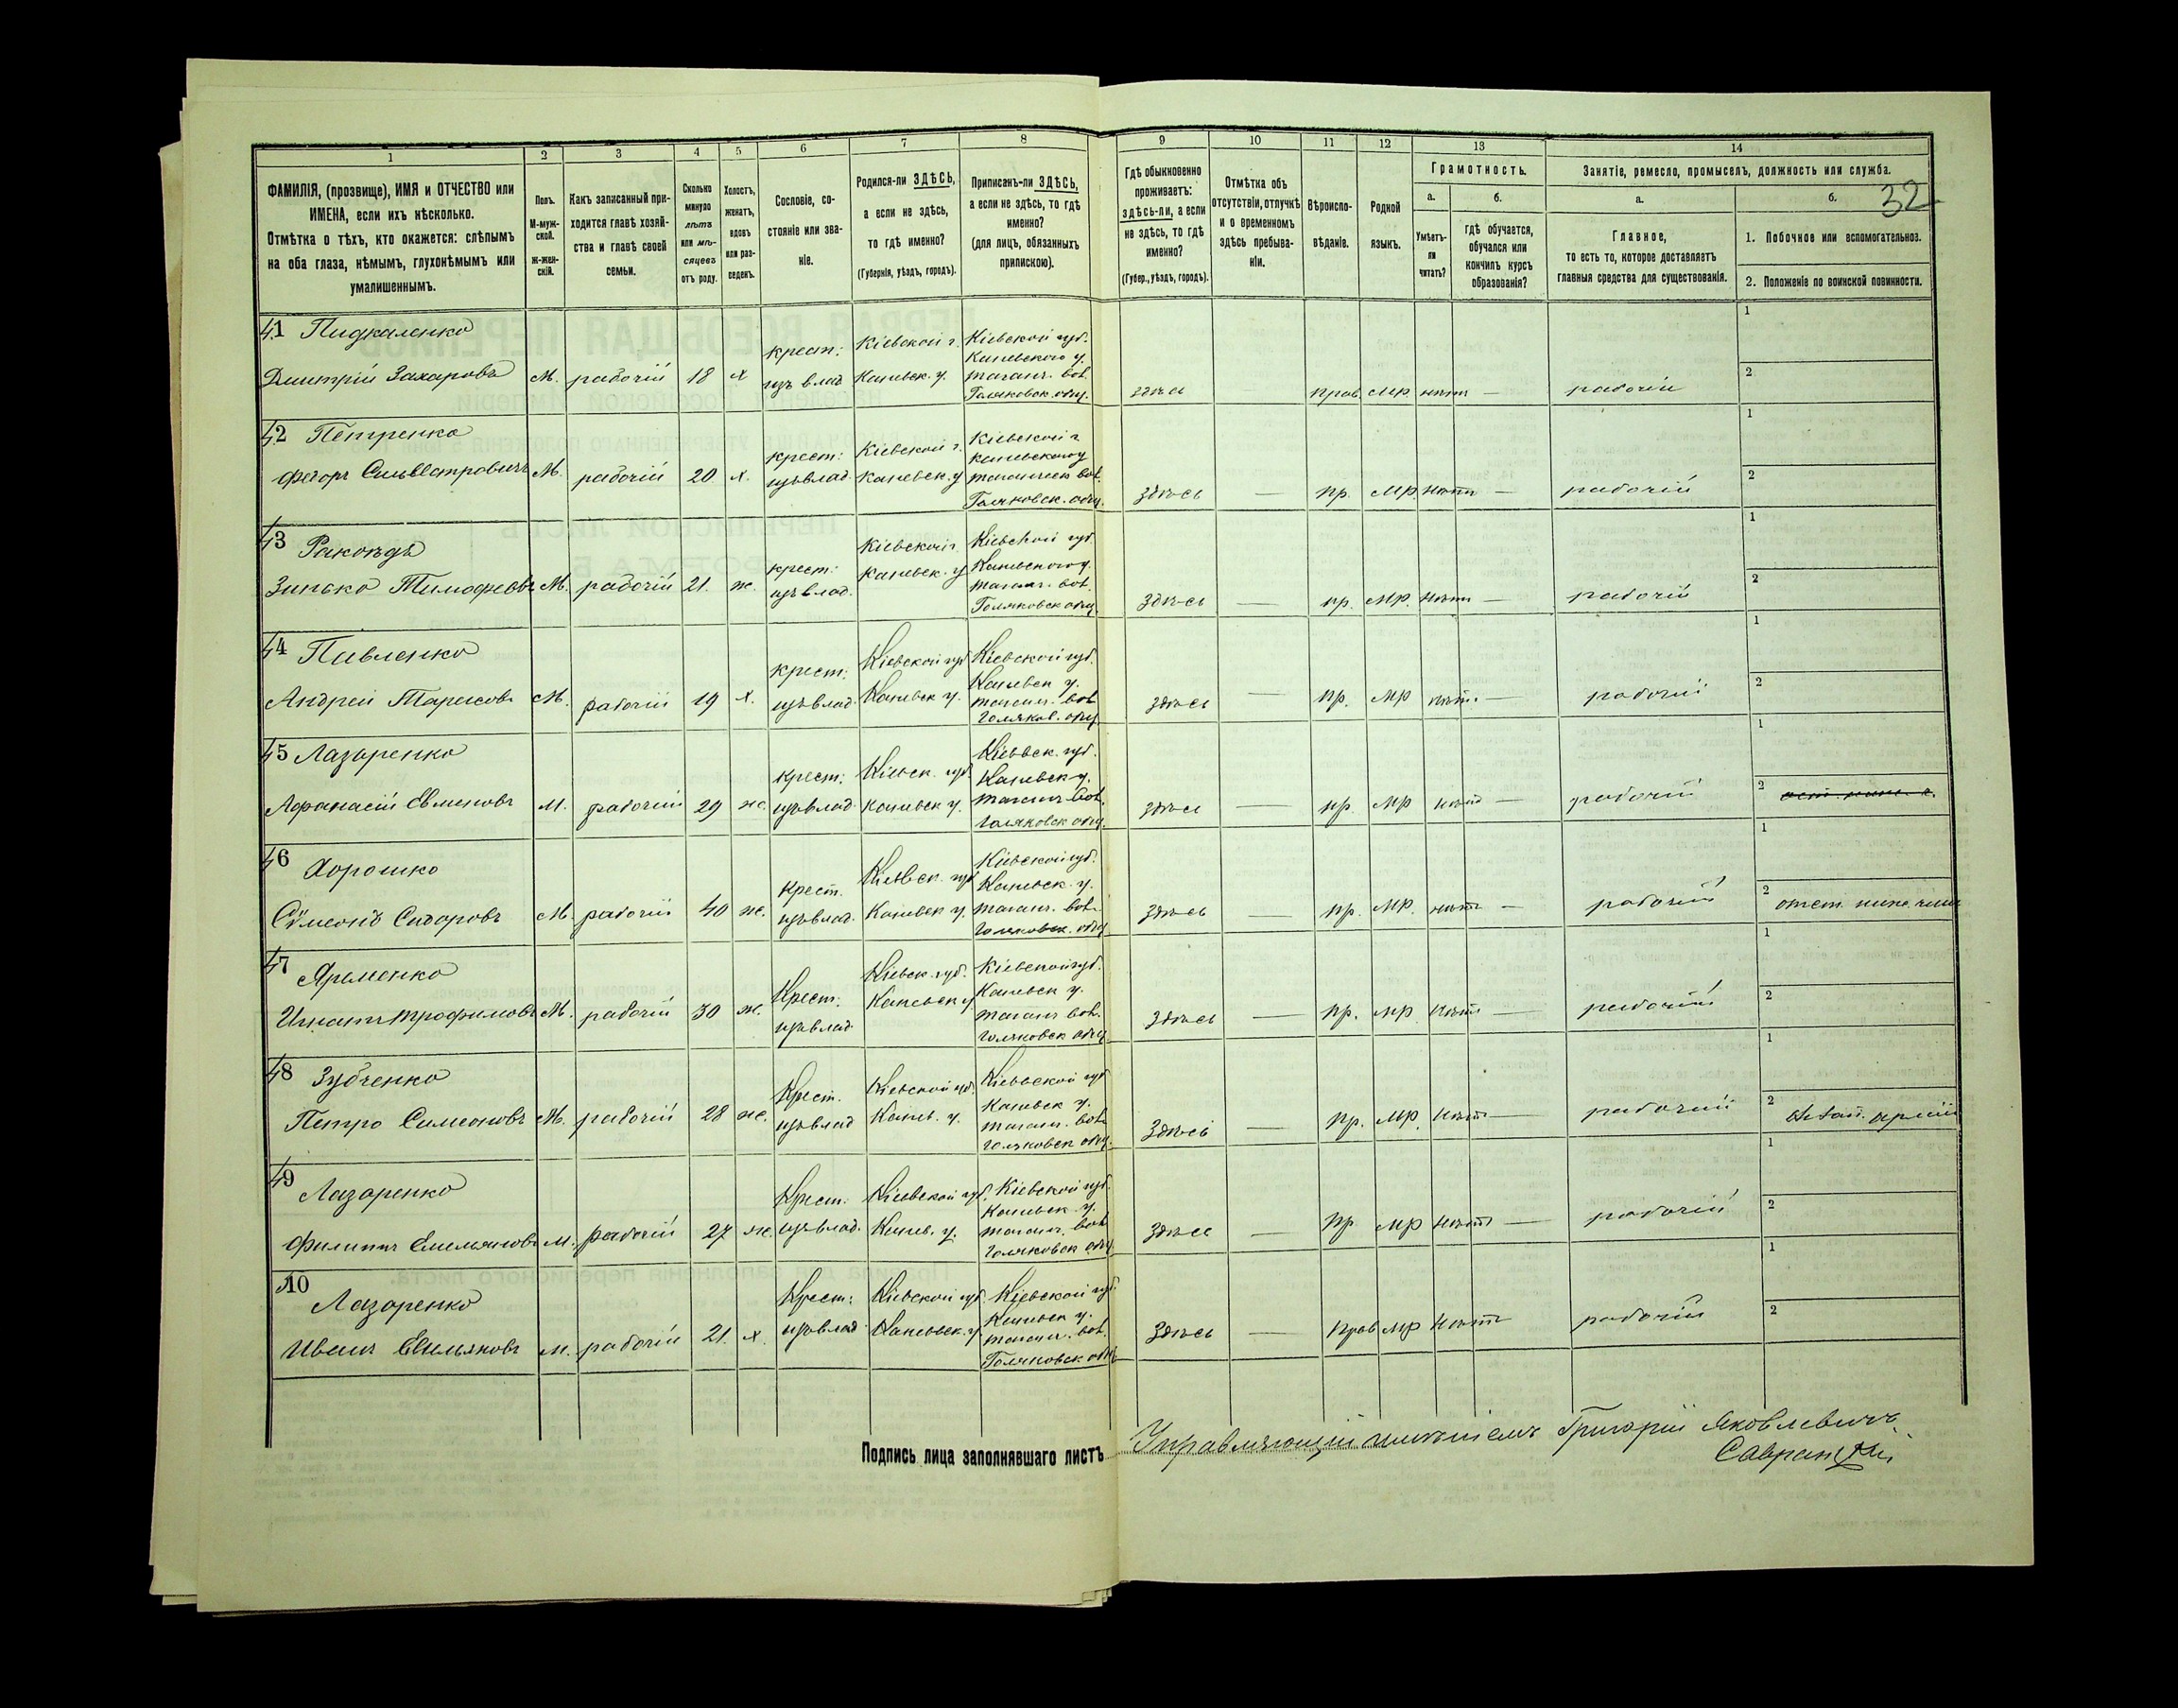 1 2 3 4 5 6 7 8 9 10 11 12 13 14
ФАМИЛІЯ, (прозвище), ИМЯ и ОТЧЕСТВО или
ИМЕНА, если ихъ нѣсколько.
Отмѣтка о тѣхъ, кто окажется: слѣпымъ
на оба глаза, нѣмымъ, глухонѣмымъ или
умалишеннымъ.
Полъ.
М-муж-
ской.
ж-жен-
скій.
Какъ записанный при-
ходится главѣ хозяй-
ства и главѣ своей
семьи.
Сколько
минуло
лѣтъ
или мѣ-
сяцевъ
отъ роду.
Холостъ,
женатъ,
вдовъ
или раз-
веденъ.
Сословіе, со-
стояніе или зва-
ніе.
Родился-ли ЗДѢСЬ,
а если не здѣсь,
то гдѣ именно?
(Губернія, уѣздъ, городъ).
Приписанъ-ли ЗДѢСЬ,
а если не здѣсь, то гдѣ
именно?
(для лицъ, обязанныхъ
припискою).
Гдѣ обыкновенно
проживаетъ:
здѣсь-ли, а если
не здѣсь, то гдѣ
именно?
(Губер., уѣздъ, городъ).
Отмѣтка объ
отсутствіи, отлучкѣ
и о временномъ
здѣсь пребыва-
ніи.
Вѣроиспо-
вѣданіе.
Родной
языкъ.
Грамотность.
а.
Умѣетъ-
ли
читать?
б.
гдѣ обучается,
обучался или
кончилъ курсъ
образованія?
Занятіе, ремесло, промыселъ, должность или служба.
а.
Главное,
то есть то, которое доставляетъ
главныя средства для существованія.
б.
32
1. Побочное или вспомогательное.
2. Положеніе по воинской повинности.
1
Дмитрій Захаровъ М. рабочій 18 х
крест:
изъ влад
Кіевской г.
Каневск. у.
Кіевской губ.
Каневского у.
таганч. вол.
Голяковск. общ.
здѣсь прав. МР. нѣтъ — рабочій
1
2
2 Петренко
Федоръ Сильвестровичъ М. рабочій 20. х.
крест:
изъ влад.
Кіевской г.
Каневск. у
Кіевской г
каневского у
вол.
Голяковск. общ.
здѣсь — пр. МР. нѣтъ — рабочій
1
2
3 Ракоѣдъ
Зинько Тимофеевъ М. рабочій 21. ж.
крест:
изъ влад.
Кіевской г.
Каневск. у
Кіевской губ
Каневского у.
таганч. вол.
Голяковск общ.
здѣсь — пр. МР. нѣтъ — рабочій
1
2
4 Павленко
Андрей Тарасовъ М. рабочій 19 х.
крест:
изъ влад.
Кіевской губ
Каневск у.
Кіевской губ.
Каневск у.
таганч. вол
Голяков. общ
здѣсь — пр. МР нѣтъ — рабочій
1
2
5 Лазаренко
Афанасій М. рабочій 29 ж.
крест:
изъ влад
Кіевск. губ.
Каневск у.
Кіевск. губ.
Каневск у.
таганч вол.
Голяковск общ.
здѣсь — пр. МР нѣтъ — рабочій
1
2
6 Хорошко
Сѵмеонъ Сидоровъ М. рабочій 40 ж.
крест.
изъ влад.
Кіевск. губ
Каневск у.
Кіевской губ.
Каневск. у.
таганч. вол.
Голяковск. общ
здѣсь — пр. МР. нѣтъ — рабочій
1
2
7 Яременко
Игнатъ Трофимовъ М. рабочій 30 ж.
Крест:
изъ влад
Кіевск. губ.
Каневск у
Кіевской губ.
Каневск у.
таганч вол.
Голяковск общ
здѣсь — пр. МР нѣтъ — рабочій
1
2
8 Зубченко
Петро Симеоновъ М. рабочій 28 ж.
Крест.
изъ влад
Кіевской губ.
Канев. у.
Кіевской губ
Каневск у.
таганч. вол
Голяковск общ.
здѣсь — пр. МР. нѣтъ — рабочій
1
2 арміи
9
Лазаренко
Филиппъ Емельяновъ М. рабочій 27 ж.
Крест.
изъ влад.
Кіевской губ.
Канев. у.
Кіевской губ.
Каневск. у.
таганч. вол
Голяковск общ
здѣсь — пр МР нѣтъ — рабочій
1
2
10
Лазаренко
Иванъ М. рабочій 21. х.
Крест:
изъ влад
Кіевской губ.
Каневск. у
Кіевской губ
Каневск у.
таганч. вол.
Голяковск общ
здѣсь — прав МР нѣтъ рабочій
1
2
Подпись лица заполнявшаго листъ Управляющій имѣніемъ Григорій Яковлевичъ
Савранскій